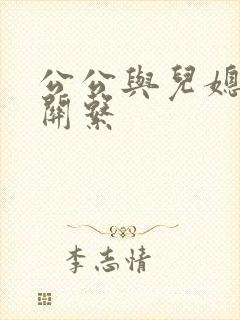 公公與兒媳
關繫
李志情